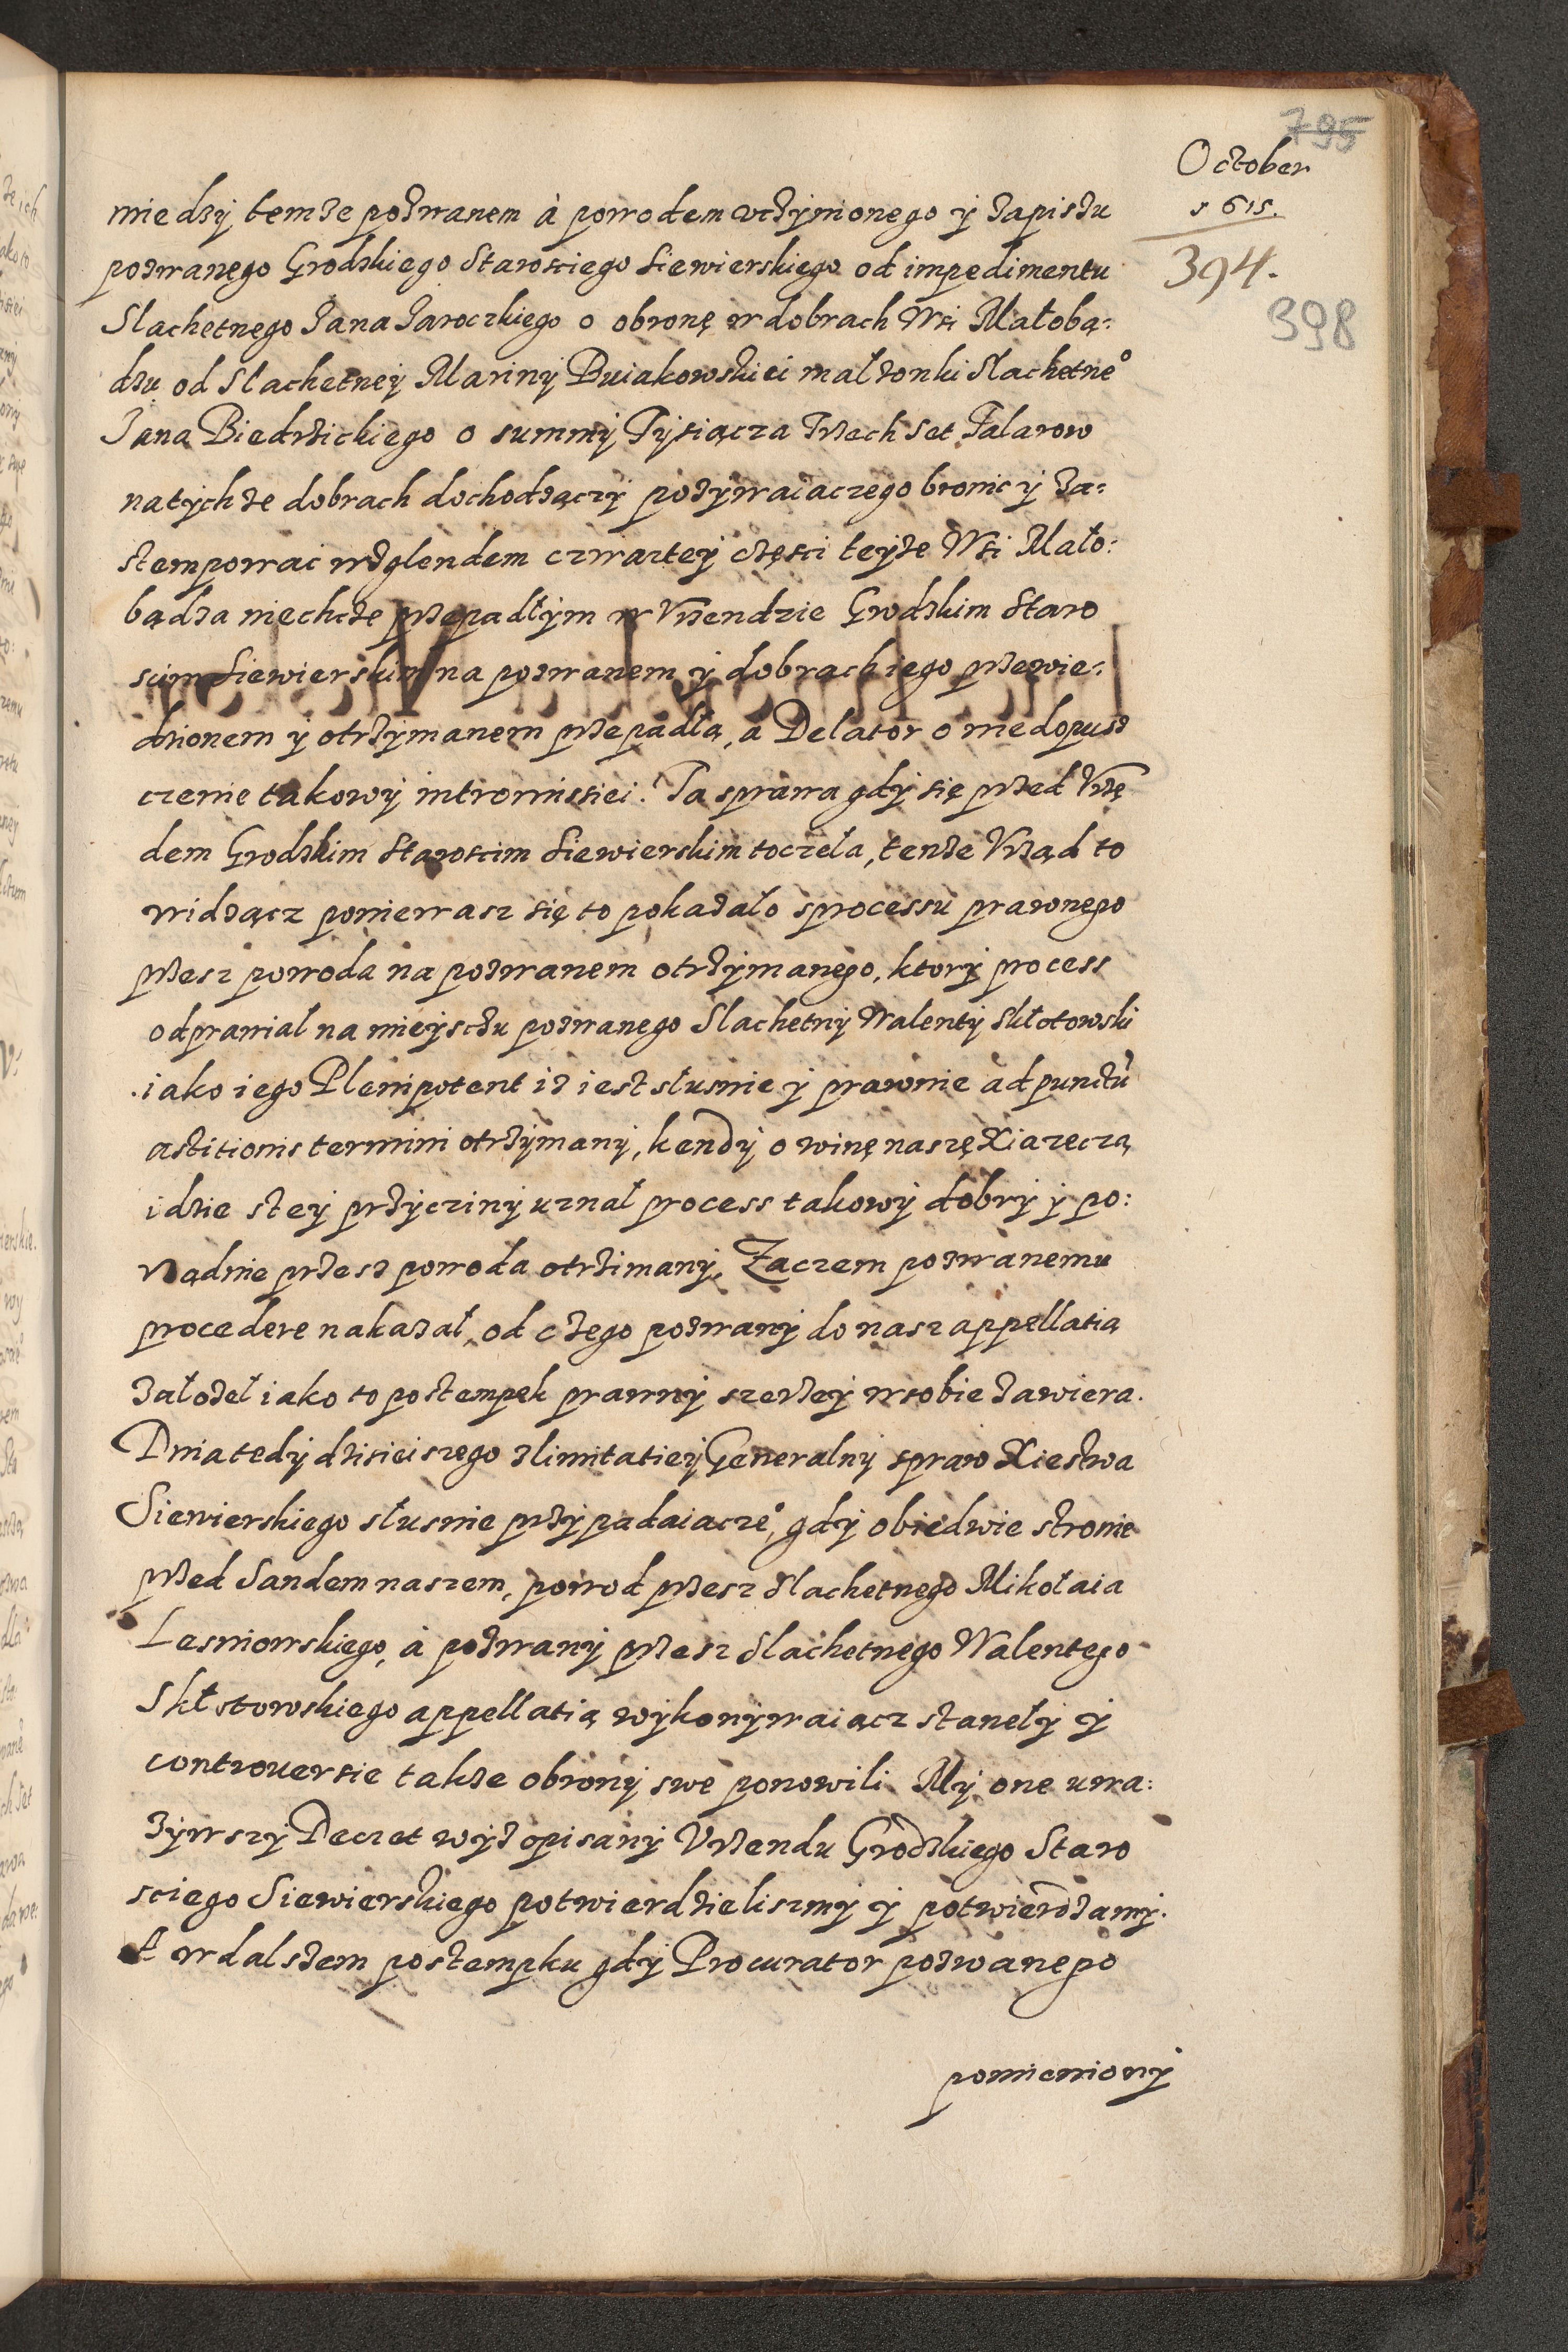 795
October
1615.
394.
398
miedzy temze pozwanem à powodem vczynionego y zapiszu
pozwanego Grodzkiego Starosciego Siewierskiego od impedimentu
Slachetnego Jana Jaroczkiego o obronę w dobrach Wsi Małobą:
dzu od Slachetney Mariny Buiakowskiei małzonki Slachetne͛o
Jana Biedrzickiego o summy Tysiącza Trzech Set Talarow
natychze dobrach dochodzączy pozywaiaczego bronic y za:
stempowac wzglendem czwartey częsci teyze Wsi Mało:
bądza niechcze przepadłym w Vrzendzie Grodzkim Staro
scim Siewierskim na pozwanem y dobrach iego przewie:
dzionem y otrzymanem przepadła, a Delator o niedopusz
czenie takowy intromissiei. Ta sprawa gdy się przed Vrzę
dem Grodzkim Staroscim Siewierskim toczeła, tenze Vrząd to
widzącz poniewasz się to pokazało sprocessu prawnego
przesz powoda na pozwanem otrzymanego, ktory process
odprawiał na mieysczu pozwanego Slachetny Walenty Skłotowski
iako iego Plenipotent iz iest słusnie y prawnie ad punctu
astitionis termini otrzymany, kendy o winę naszę Xiazęczą
idzie stey przycziny uznał process takowy dobry y po:
rządnie przesz powoda otrzimany. Zaczem pozwanemu
procedere nakazał, od czego pozwany do nasz appellatią
załozeł iako to postempek prawny szerzey w sobie zawiera.
Dnia tedy dzisieiszego zlimitatiey Generalny spraw Xiestwa
Siewierskiego słusnie przypadaiacze͛o, gdy obiedwie stronie
przed Sandem naszem, powod przesz Slachetnego Mikołaia
Lesniowskiego, à pozwany przesz Slachetnego Walentego
Skłotowskiego appellatią wykonywaiącz stanęły y
controuersie takze obrony swe ponowili. My one uwa:
zywszy Decret wyz opisany Vrzendu Grodzkiego Staro
sciego Siewierskiego potwierdzieliszmy y potwierdzamy.
A w dalszem postempku gdy Procurator pozwanego
pomieniony